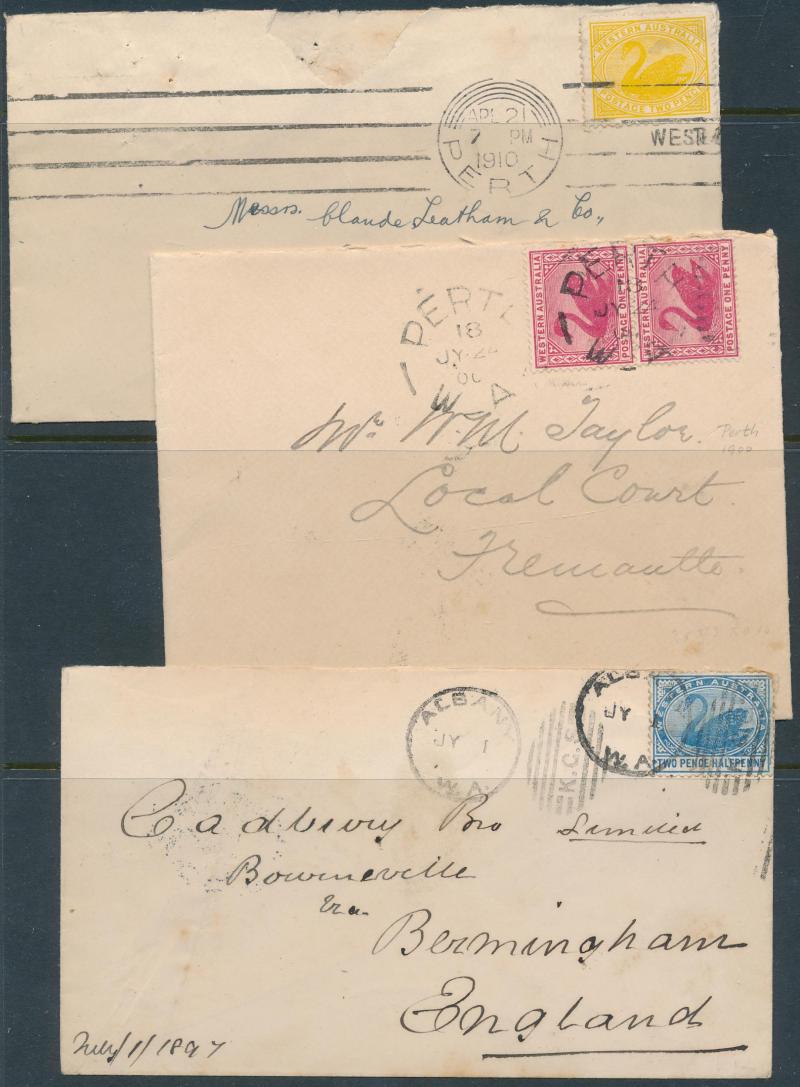 WESTERN AUSTRALIA
POSTAGE TWO PENCE
APL 21
7 PM
1910
PERTH
WEST
Messrs. Claude Leatham & Co.,
WESTERN AUSTRALIA
POSTAGE ONE PENNY
WESTERN AUSTRALIA
POSTAGE ONE PENNY
PERTH
18
JY 24
W A
PERT
18
JY 24
00
W A
Mr. W. M. Taylor
Perth
1900
Local Court
Fremantle
WESTERN AUSTRALIA
TWO PENCE HALFPENNY
ALBANY
JY 1
W.A.
K.C.S
ALBANY
JY 1
W.A.
Cadbury Bro Limited
Bourneville
Bermingham
England
July/1/1897